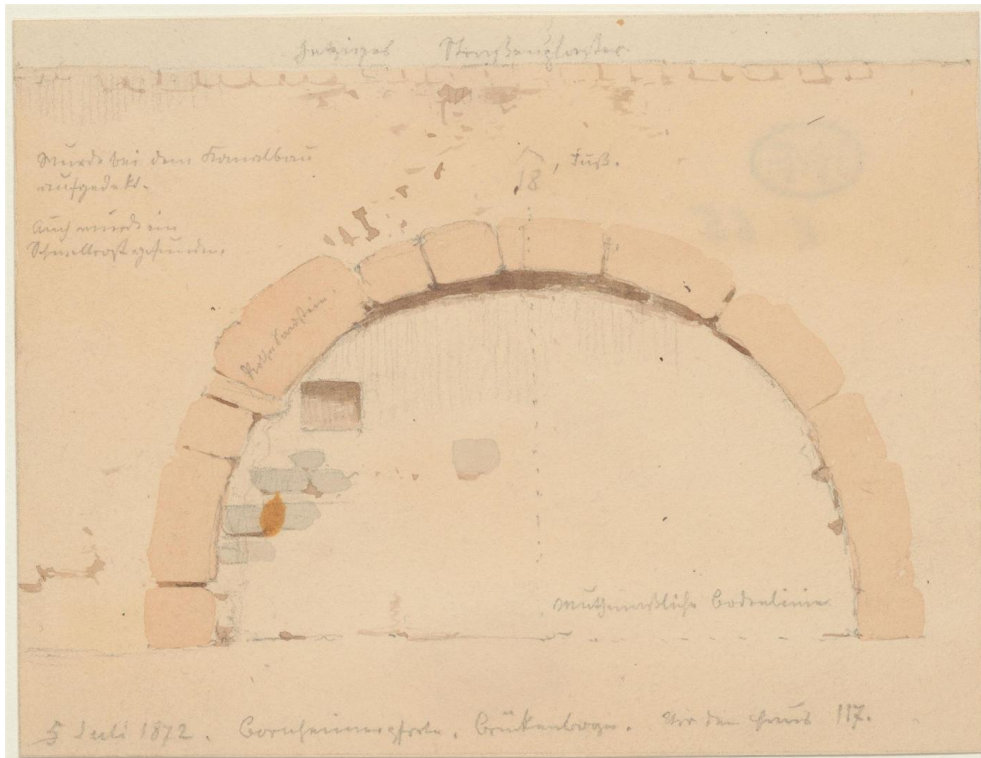 Jetziges Straßenpflaster.
Wurde bei dem Kanalbau
aufgedekt.
Auch wurde ein
Schmelltrost gefunden.
18, Fuß.
Rother Sandstein.
Muthmaßliche Bodenlinie
5 Juli 1872. Bornheimerpforte. Brükenboge. Vor dem Haus 117.